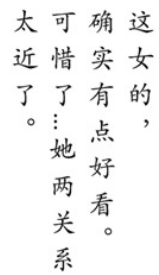 这女的，
确实有点好看。
可惜了…她两关系
太近了。